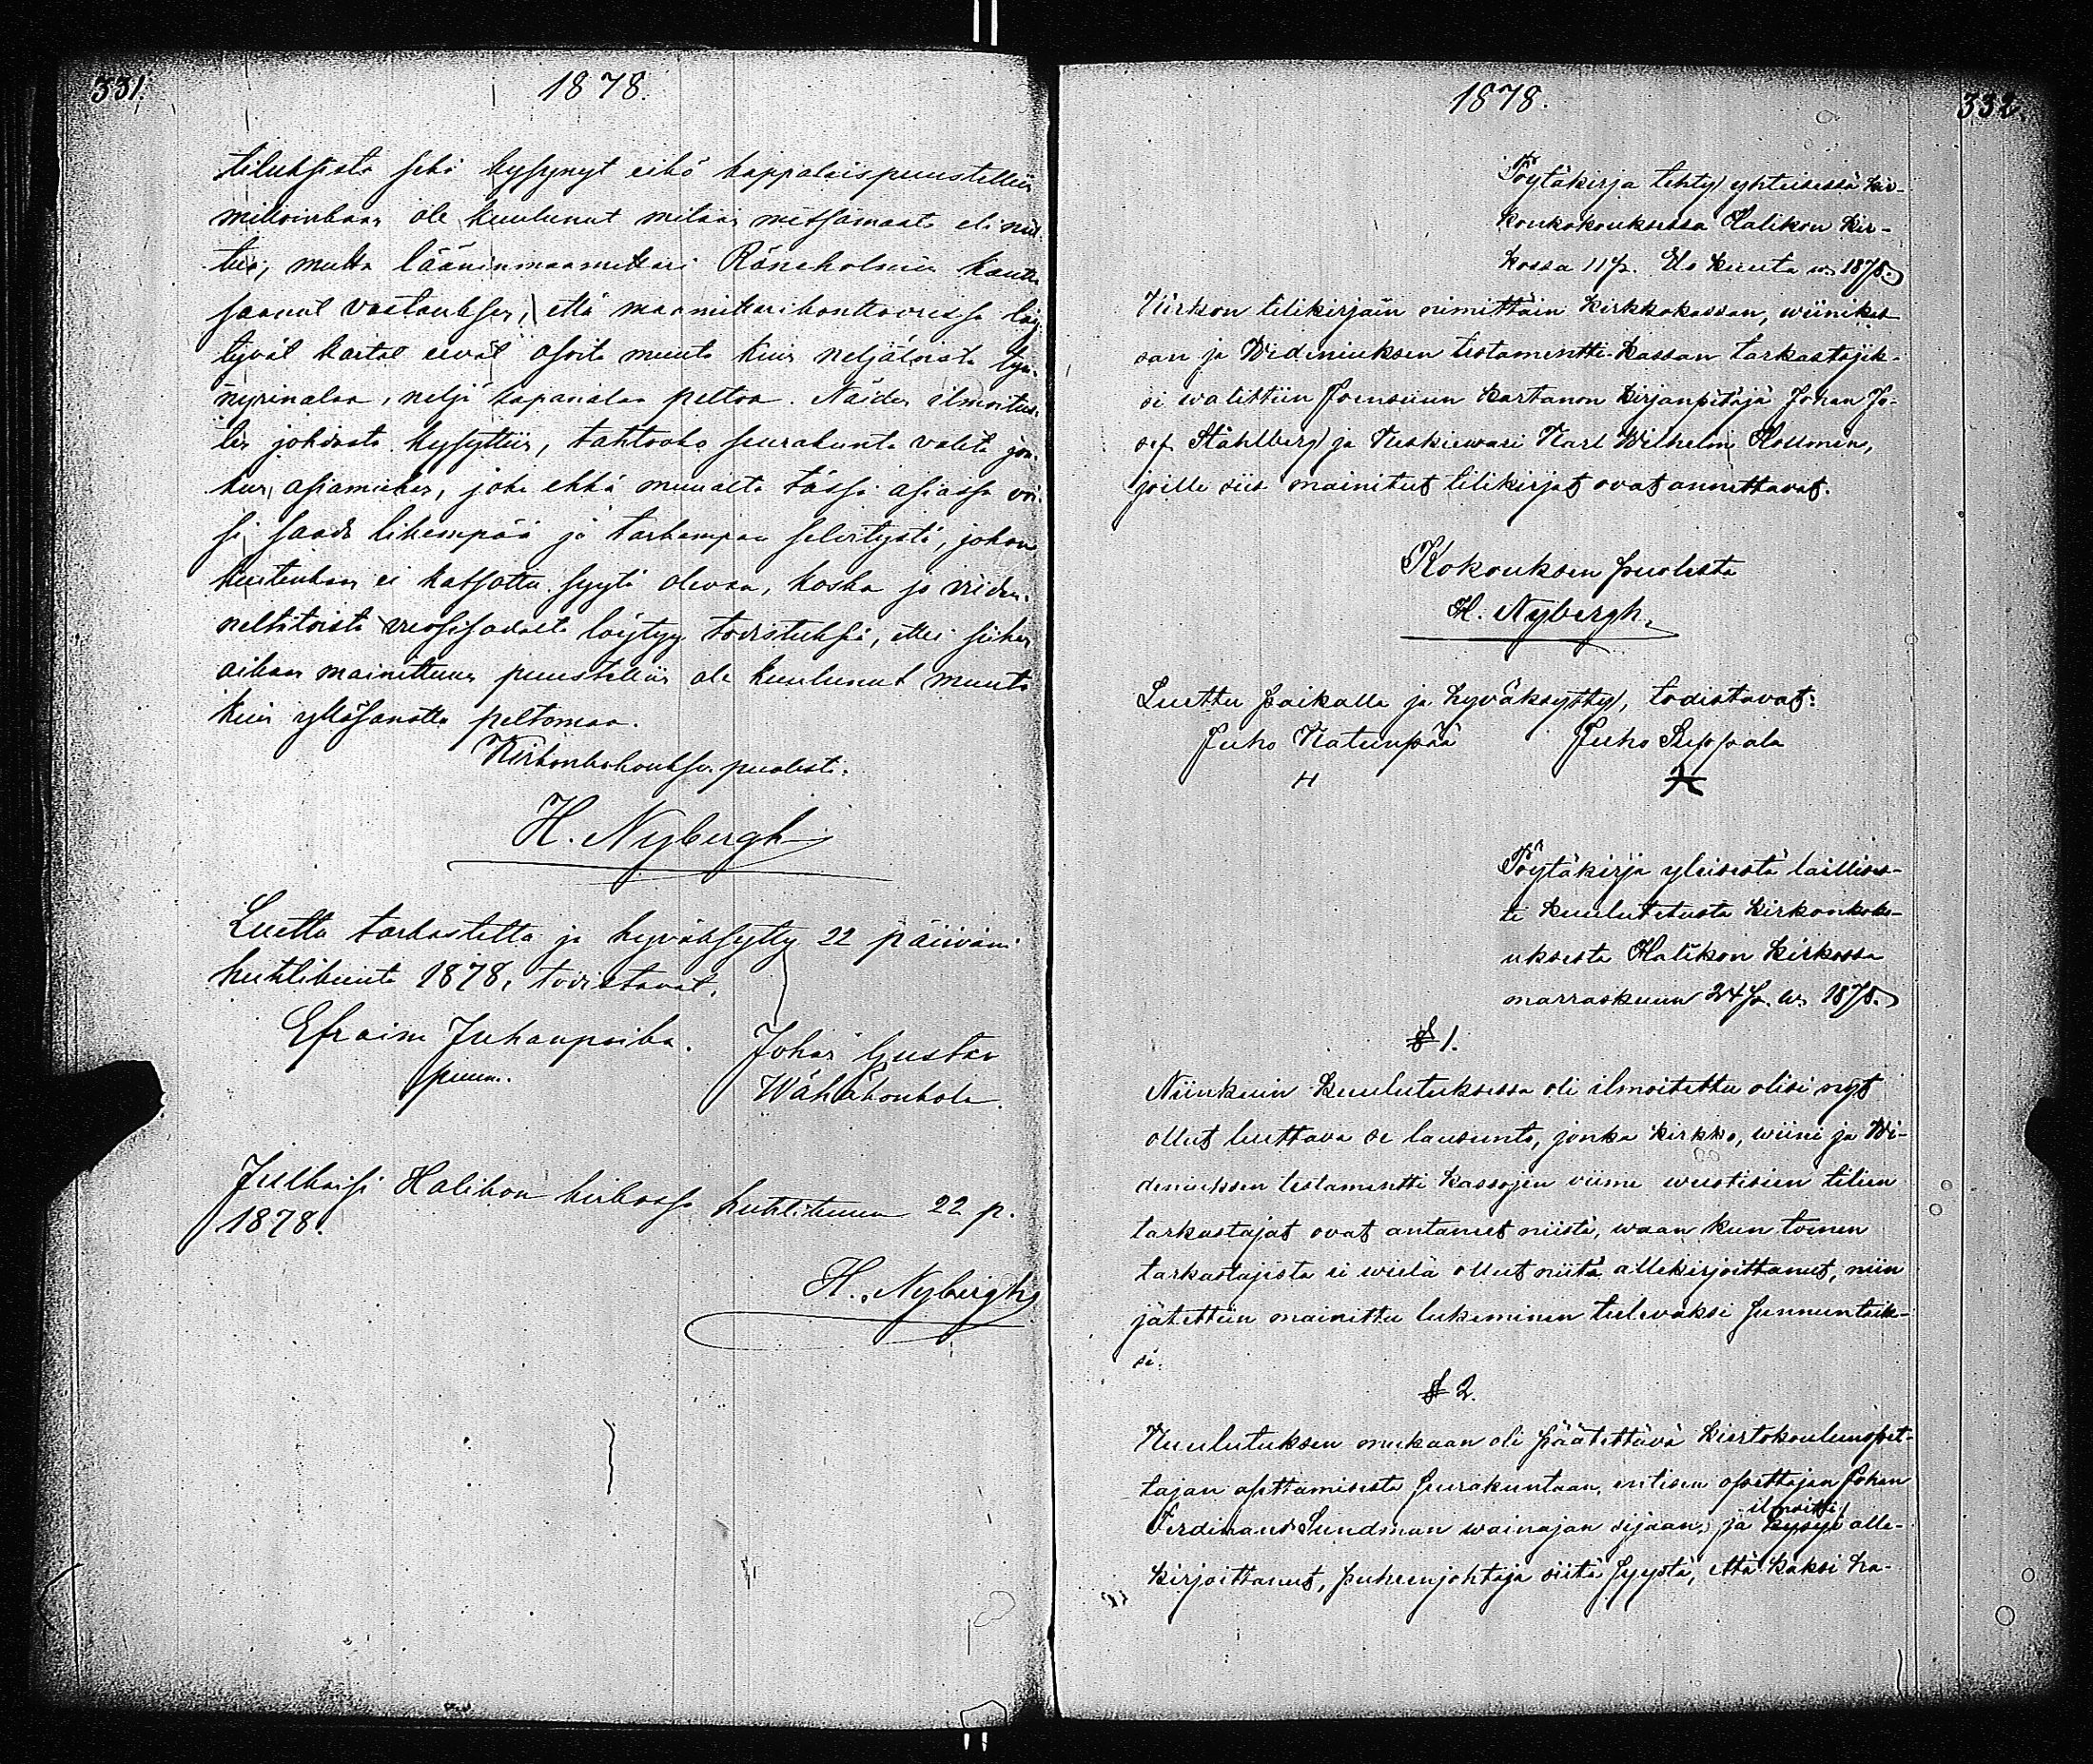 331.
1878.
tiluksista sekä kysynyt eikö kappalaispuustelliin
milloinkaan ole kuulunut mitään metsämaata eli niit-
tua; mutta lääninmaamittari Röneholmin kautta
saanut vastauksen, että maamittarikonttoorissa löy-
tyvät kartat eivät osoita muuta kuin neljätoista tyn-
nyrinalaa, neljä kapanalaa peltoa. Näiden ilmoitus-
ten johdosta kysyttiin, tahtooko seurakunta valita jon-
kun asiamiehen, joka ehkä muualta tässä asiassa voi-
si saada likempää ja tarkempaa selvitystä, johon
kuitenkaan ei katsottu syytä olevan, koska jo viiden-
neltätoista vuosisadalta löytyy todistuksia, ettei siihen
aikaan mainittuun puustelliin ole kuulunut muuta
kuin yllösanottu peltomaa.
Kirkonkokouksen puolesta:
H. Nybergh
Luettu tarkastettu ja hyväksytty 22 päivänä
huhtikuuta 1878, todistavat,
Efraim Juhanpoika.
puum.
Johan Gustav
Wähäkoukola.
Julkaisi Halikon kirkossa huhtikuun 22 p.
1878.
H. Nybergh
1878.
332.
Pöytäkirja tehty yhteisessä kir-
konkokouksessa Halikon kir-
kossa 11 p. Elo kuuta w. 1878.
Kirkon tilikirjain nimittäin kirkkokassan, wiinikas-
san ja Wideniuksen testamentti-kassan tarkastajik-
si walittiin Joensuun kartanon kirjanpitäjä Johan Jo-
sef Ståhlberg ja Nuskiewari Karl Wilhelm Hollmén,
joille siis mainitut tilikirjat ovat annettavat.
Kokouksen puolesta
H. Nybergh.
Luettu paikalla ja hyväksytty, todistavat:
Juho Katunpää Juho Seppälä
Pöytäkirja yleisestä laillises-
ti kuulutetusta kirkonkoko-
uksesta Halikon kirkossa
marraskuun 24 p. w. 1878.
§ 1.
Niinkuin kuulutuksessa oli ilmoitettu olisi nyt
ollut luettava se lausunto, jonka kirkko, wiini ja Wi-
deniuksen testamentti kassojen viime wuotisien tilien
tarkastajat ovat antaneet niistä, waan kun toinen
tarkastajista ei wielä ollut niitä allekirjoittanut, niin
jätettiin mainittu lukeminen tulevaksi sunnuntaik-
si.
§ 2.
Kuulutuksen mukaan oli päätettävä kiertokoulunopet-
tajan asettamisesta seurakuntaan, entisen opettajan Johan
ilmoitti
Ferdinand Sundman wainajan sijaan, ja kysyi alle-
kirjoittanut, puheenjohtaja siitä syystä, että kaksi ha-